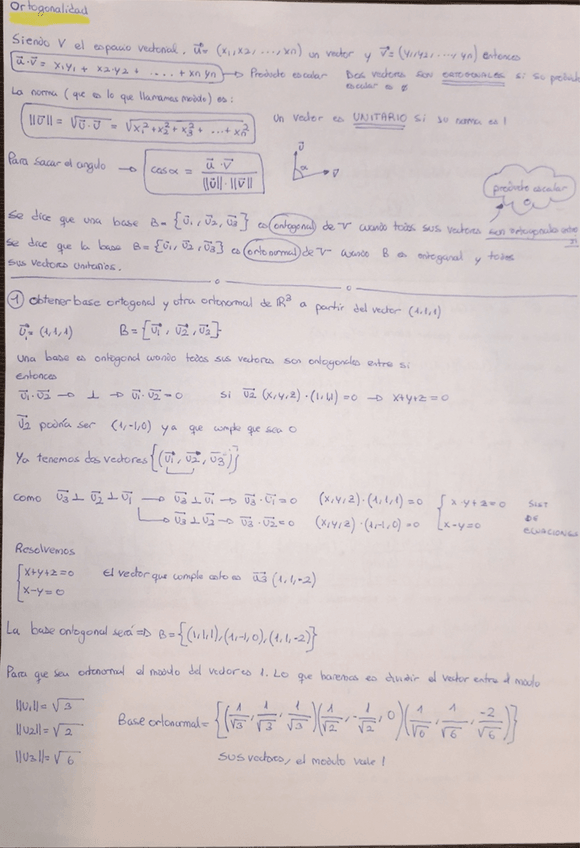 Ortogonalidad
Siendo V el espacio vectorial, u⃗ = (x₁, x₂, ..., xn) un vector y v⃗ = (y₁, y₂, ..., yn) entonces
u⃗·v⃗ = x₁y₁ + x₂y₂ + ..... + xnyn → Producto escalar Dos vectores son ORTOGONALES si su producto
escalar es 0
La norma (que es lo que llamamos modulo) es:
||u⃗|| = √(u⃗·u⃗) = √(x₁² + x₂² + x₃² + ... + xn²) Un vector es UNITARIO si su norma es 1
u⃗
Para sacar el angulo → cos α = (u⃗·v⃗)/(||u⃗||·||v⃗||) α v⃗
producto escalar
0
Se dice que una base B = {u⃗₁, u⃗₂, u⃗₃} es ortogonal de V cuando todos sus vectores son ortogonales entre
si
Se dice que la base B = {u⃗₁, u⃗₂, u⃗₃} es ortonormal de V cuando B es ortogonal y todos
sus vectores unitarios.
① Obtener base ortogonal y otra ortonormal de ℝ³ a partir del vector (1,1,1)
u⃗₁ = (1,1,1) B = {u⃗₁, u⃗₂, u⃗₃}
Una base es ortogonal cuando todos sus vectores son ortogonales entre si
entonces
u⃗₁·u⃗₂ → ⊥ → u⃗₁·u⃗₂ = 0 si u⃗₂ (x,y,z)·(1,1,1) = 0 → x+y+z = 0
u⃗₂ podria ser (1,-1,0) ya que cumple que sea 0
Ya tenemos dos vectores {(u⃗₁, u⃗₂, u⃗₃)}
como u⃗₃ ⊥ u⃗₂ ⊥ u⃗₁ → u⃗₃ ⊥ u⃗₁ → u⃗₃·u⃗₁ = 0 (x,y,z)·(1,1,1) = 0 { x+y+z = 0 SIST
DE
→ u⃗₃ ⊥ u⃗₂ → u⃗₃·u⃗₂ = 0 (x,y,z)·(1,-1,0) = 0 { x-y = 0 ECUACIONES
Resolvemos
{ x+y+z = 0 El vector que cumple esto es u⃗₃ (1,1,-2)
{ x-y = 0
La base ortogonal será ⇒ B = {(1,1,1), (1,-1,0), (1,1,-2)}
Para que sea ortonormal el modulo del vector es 1. Lo que haremos es dividir el vector entre el modulo
||u₁|| = √3
||u₂|| = √2 Base ortonormal = {(1/√3, 1/√3, 1/√3)(1/√2, -1/√2, 0)(1/√6, 1/√6, -2/√6)}
||u₃|| = √6 sus vectores, el modulo vale 1